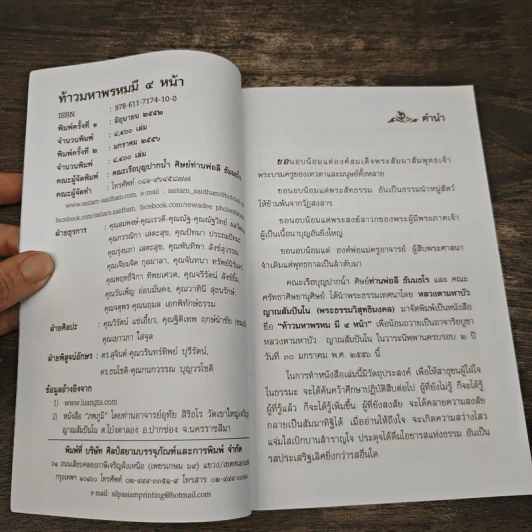 ท้าวมหาพรหมมี ๔ หน้า
ISBN : 978-611-7174-10-0
พิมพ์ครั้งที่ ๑ : มิถุนายน ๒๕๕๒
จำนวนพิมพ์ : ๘,๔๐๐ เล่ม
พิมพ์ครั้งที่ ๒ : มกราคม ๒๕๕๖
จำนวนพิมพ์ : ๘,๔๐๐ เล่ม
คณะผู้จัดพิมพ์ : คณะเรือบุญปากน้ำ ศิษย์ท่านพ่อลี ธัมมธโร
คณะผู้จัดทำ : โทรศัพท์
www.saitam-saidham.com, e-mail : saitam_saidham@hotmail
facebook.com/saitam.saidham, facebook.com/rewadee
ฝ่ายธุรการ : คุณสมพงษ์-คุณเรวดี-คุณณัฐ-คุณณัฐวิทย์
คุณกรรณิกา เสตะสุข, คุณปัทมา
คุณรุ่งนภา เสตะสุข, คุณพันทิพา
คุณเจียมจิต กุลมาลา, คุณจันทนา
คุณพฤทธิ์จิกา ทิพยเศวต, คุณจรีรัตน์
คุณวันเพ็ญ อ่อนมั่นคง, คุณวาทินี สุธนรักษ์,
คุณจตุพร-คุณนฤมล เอกพิทักษ์ธรรม
ฝ่ายศิลปะ : คุณวิรัตน์ แซ่เอี้ยว, คุณฐิติเทพ ฤกษ์นำชัย
คุณเยาวภา ใสจุล
ฝ่ายพิสูจน์อักษร : ดร.สุจินต์-คุณวรินทร์ทิพย์ บุรีรัตน์,
ดร.ธนโชติ-คุณกนกวรรณ บุญวรโชติ
ข้อมูลอ้างอิงจาก
1) www.luangta.com
2) หนังสือ "ภพภูมิ" โดยท่านอาจารย์อุทัย สิริธโร วัดเขาใหญ่
ญาณสัมปันโน ต.โป่งตาลอง อ.ปากช่อง จ.นครราชสีมา
พิมพ์ที่ บริษัท ศิลป์สยามบรรจุภัณฑ์และการพิมพ์ จำกัด
๖๑ ถนนเลียบคลองภาษีเจริญฝั่งเหนือ (เพชรเกษม ๖๙) แขวง/เขตหนองแขม
กรุงเทพฯ ๑๐๑๖๐ โทรศัพท์ ๐๒-๔๔๔-๓๓๕๑-๙ โทรสาร
e-mail: silpasiamprinting@hotmail.com
คำนำ
ขอนอบน้อมแด่องค์สมเด็จพระสัมมาสัมพุทธเจ้า
พระบรมครูของเทวดาและมนุษย์ทั้งหลาย
ขอนอบน้อมแด่พระสัทธรรม อันเป็นธรรมนำหมู่สัตว์
ให้ข้ามพ้นจากวัฏสงสาร
ขอนอบน้อมแด่พระสงฆ์สาวกของพระผู้มีพระภาคเจ้า
ผู้เป็นเนื้อนาบุญอันยิ่งใหญ่
ขอนอบน้อมแด่ องค์พ่อแม่ครูอาจารย์ ผู้สืบพระศาสนา
จำเดิมแต่พุทธกาลเป็นลำดับมา
คณะเรือบุญปากน้ำ ศิษย์ท่านพ่อลี ธัมมธโร และ คณะ
ศรัทธาศิษยานุศิษย์ ได้นำพระธรรมเทศนาโดย หลวงตามหาบัว
ญาณสัมปันโน (พระธรรมวิสุทธิมงคล) มาจัดพิมพ์เป็นหนังสือ
ชื่อ "ท้าวมหาพรหม มี ๔ หน้า" เพื่อน้อมถวายเป็นอาจาริยบูชา
หลวงตามหาบัว ญาณสัมปันโน ในวาระนิพพานครบรอบ ๒ ปี
วันที่ ๓๐ มกราคม พ.ศ. ๒๕๕๖ นี้
ในการทำหนังสือเล่มนี้มีวัตถุประสงค์ เพื่อให้สาธุชนผู้ใฝ่ใจ
ในธรรมะ จะได้ค้นคว้าศึกษาปฏิบัติสืบต่อไป ผู้ที่ยังไม่รู้ ก็จะได้รู้
ผู้ที่รู้แล้ว ก็จะได้รู้เพิ่มขึ้น ผู้ที่ยังสงสัย จะได้คลายความสงสัย
กลายเป็นสัมมาทิฐิได้ เมื่ออ่านให้ถึงใจ จะเกิดความสว่างไสว
แจ่มใสเบิกบานสำราญใจ ประดุจได้ดื่มโอชารสแห่งธรรม อันเป็น
รสประเสริฐเลิศยิ่งกว่ารสอื่นใด